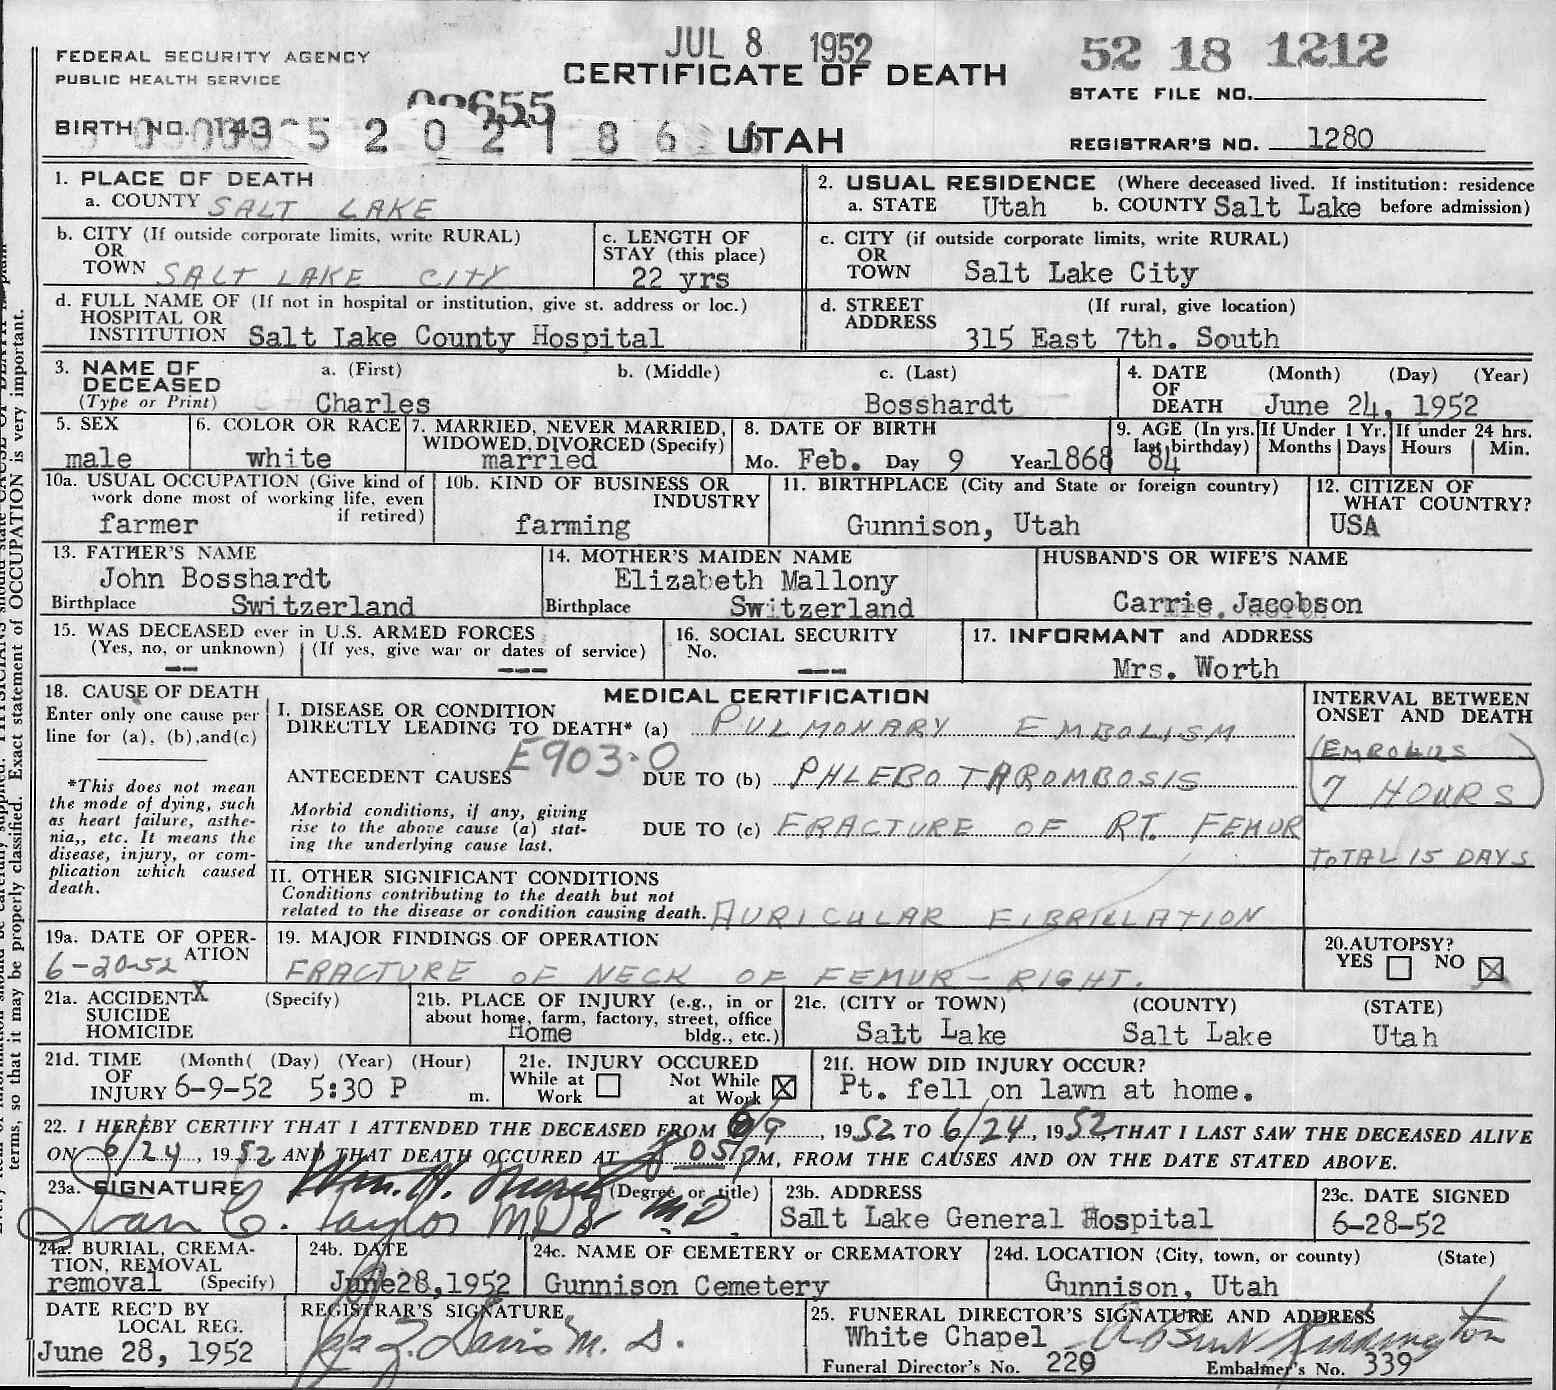 JUL 8 1952
52 18 1212
FEDERAL SECURITY AGENCY
PUBLIC HEALTH SERVICE
CERTIFICATE OF DEATH
STATE FILE NO.
BIRTH NO. 143
5 2 0 2 1 8 6
UTAH
REGISTRAR'S NO. 1280
1. PLACE OF DEATH
a. COUNTY SALT LAKE
2. USUAL RESIDENCE (Where deceased lived. If institution: residence before admission)
a. STATE Utah b. COUNTY Salt Lake
b. CITY (If outside corporate limits, write RURAL)
OR
TOWN SALT LAKE CITY
c. LENGTH OF
STAY (this place)
22 yrs
c. CITY (if outside corporate limits, write RURAL)
OR
TOWN Salt Lake City
d. FULL NAME OF (If not in hospital or institution, give st. address or loc.)
HOSPITAL OR
INSTITUTION Salt Lake County Hospital
d. STREET (If rural, give location)
ADDRESS
315 East 7th. South
3. NAME OF
DECEASED
(Type or Print)
a. (First) b. (Middle) c. (Last)
Charles Bosshardt
4. DATE (Month) (Day) (Year)
OF
DEATH June 24, 1952
5. SEX
male
6. COLOR OR RACE
white
7. MARRIED, NEVER MARRIED,
WIDOWED, DIVORCED (Specify)
married
8. DATE OF BIRTH
Mo. Feb. Day 9 Year 1868
9. AGE (In yrs.
last birthday)
84
If Under 1 Yr.
Months Days
If under 24 hrs.
Hours Min.
10a. USUAL OCCUPATION (Give kind of
work done most of working life, even
if retired)
farmer
10b. KIND OF BUSINESS OR
INDUSTRY
farming
11. BIRTHPLACE (City and State or foreign country)
Gunnison, Utah
12. CITIZEN OF
WHAT COUNTRY?
USA
13. FATHER'S NAME
John Bosshardt
Birthplace Switzerland
14. MOTHER'S MAIDEN NAME
Elizabeth Mallony
Birthplace Switzerland
HUSBAND'S OR WIFE'S NAME
Carrie Jacobson
15. WAS DECEASED ever in U.S. ARMED FORCES
(Yes, no, or unknown) (If yes, give war or dates of service)
-- ---
16. SOCIAL SECURITY
No.
---
17. INFORMANT and ADDRESS
Mrs. Worth
18. CAUSE OF DEATH
Enter only one cause per
line for (a), (b), and (c)
*This does not mean
the mode of dying, such
as heart failure, asthe-
nia,, etc. It means the
disease, injury, or com-
plication which caused
death.
MEDICAL CERTIFICATION
I. DISEASE OR CONDITION
DIRECTLY LEADING TO DEATH* (a) PULMONARY EMBOLISM
E903.0
ANTECEDENT CAUSES DUE TO (b) PHLEBOTHROMBOSIS
Morbid conditions, if any, giving
rise to the above cause (a) stat-
ing the underlying cause last.
DUE TO (c) FRACTURE OF RT. FEMUR
INTERVAL BETWEEN
ONSET AND DEATH
(EMBOLUS)
7 HOURS
TOTAL 15 DAYS
II. OTHER SIGNIFICANT CONDITIONS
Conditions contributing to the death but not
related to the disease or condition causing death. AURICULAR FIBRILLATION
19a. DATE OF OPER-
ATION
6-20-52
19. MAJOR FINDINGS OF OPERATION
FRACTURE OF NECK OF FEMUR - RIGHT.
20. AUTOPSY?
YES NO X
21a. ACCIDENT X (Specify)
SUICIDE
HOMICIDE
21b. PLACE OF INJURY (e.g., in or
about home, farm, factory, street, office
bldg., etc.)
Home
21c. (CITY or TOWN) (COUNTY) (STATE)
Salt Lake Salt Lake Utah
21d. TIME (Month( (Day) (Year) (Hour)
OF
INJURY 6-9-52 5:30 P m.
21e. INJURY OCCURED
While at Work
Not While at Work X
21f. HOW DID INJURY OCCUR?
Pt. fell on lawn at home.
22. I HEREBY CERTIFY THAT I ATTENDED THE DECEASED FROM 6/9, 1952 TO 6/24, 1952, THAT I LAST SAW THE DECEASED ALIVE
ON 6/24, 1952 AND THAT DEATH OCCURED AT 05 PM, FROM THE CAUSES AND ON THE DATE STATED ABOVE.
23a. SIGNATURE (Degree or title)
Ivan C. Taylor MD & MD
23b. ADDRESS
Salt Lake General Hospital
23c. DATE SIGNED
6-28-52
24a. BURIAL, CREMA-
TION, REMOVAL
removal (Specify)
24b. DATE
June 28, 1952
24c. NAME OF CEMETERY or CREMATORY
Gunnison Cemetery
24d. LOCATION (City, town, or county) (State)
Gunnison, Utah
DATE REC'D BY
LOCAL REG.
June 28, 1952
REGISTRAR'S SIGNATURE
Davis M. D.
25. FUNERAL DIRECTOR'S SIGNATURE AND ADDRESS
White Chapel
Funeral Director's No. 229 Embalmer's No. 339